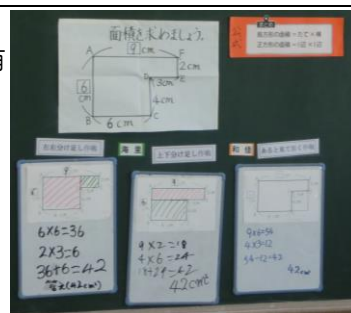 面積を求めましょう。
9 cm
A
F
2cm
D
E
3cm
6
cm
4cm
B
C
6cm
公式
長方形の面積=たて×横
正方形の面積=一辺×一辺
左右分け足し作戦
上下分け足し作戦
あると見て引く作戦
6×6=36
2×3=6
36+6=42
答え(42cm²)
9×2=18
4×6=24
18+24=42
42cm²
9×6=54
4×3=12
54-12=42
42cm²